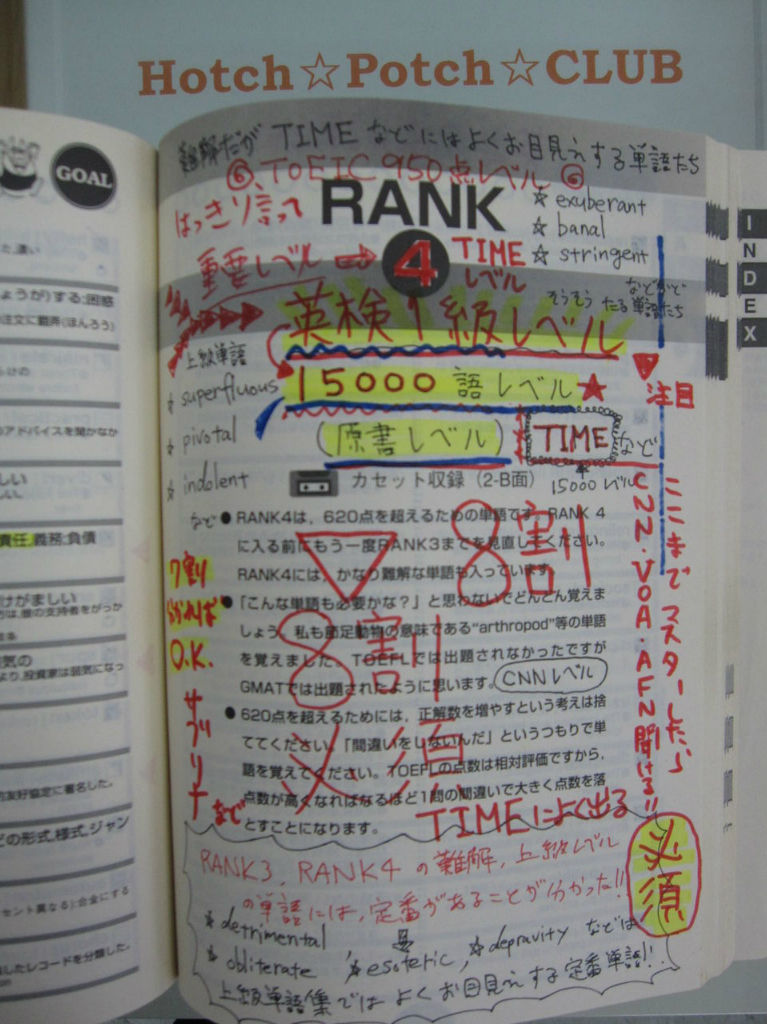 Hotch☆Potch☆CLUB
GOAL
難解だが TIME などにはよくお目見えする単語たち
⑥、TOEIC 950点レベル ⑥
はっきり言って
RANK
☆ exuberant
☆ banal
☆ stringent
重要レベル ⇨
4
TIME
レベル
などなど
そうそうたる単語たち
英検1級レベル
上級単語
☆ superfluous
☆ pivotal
☆ indolent
など
15000語レベル★
(原書レベル)
TIME など
15000レベル
注目
INDEX
カセット収録(2-B面)
● RANK4は、620点を超えるための単語です。RANK 4
に入る前にもう一度RANK3までを見直してください。
RANK4には、かなり難解な単語も入っています。
● 「こんな単語も必要かな?」と思わないでどんどん覚えま
しょう。私も節足動物の意味である“arthropod”等の単語
を覚えました。TOEFLでは出題されなかったですが
GMATでは出題されたように思います。
CNNレベル
● 620点を超えるためには、正解数を増やすという考えは捨
ててください。「間違いをしないんだ」というつもりで単
語を覚えてください。TOEFLの点数は相対評価ですから、
点数が高くなればなるほど1問の間違いで大きく点数を落
とすことになります。
8割
8割
必須
7割
わかれば
O.K.
サプリナなど
ここまでマスターしたら
CNN・VOA・AFN聞ける!!
TIMEによく出る
必須
RANK3、RANK4 の難解、上級レベル
の単語には、定番があることが分かった!!
☆ detrimental
☆ obliterate ☆ esoteric, ☆ depravity などは
上級単語集ではよくお目見えする定番単語!!
ょうが)する;困惑
注文に翻弄(ほんろう)
アドバイスを聞かなか
責任,義務;負債
けがましい
より,投資家は弱気になっ
友好協定に署名した。
どの形式,様式,ジャン
セント異なる);合金にする
したレコードを分類した。